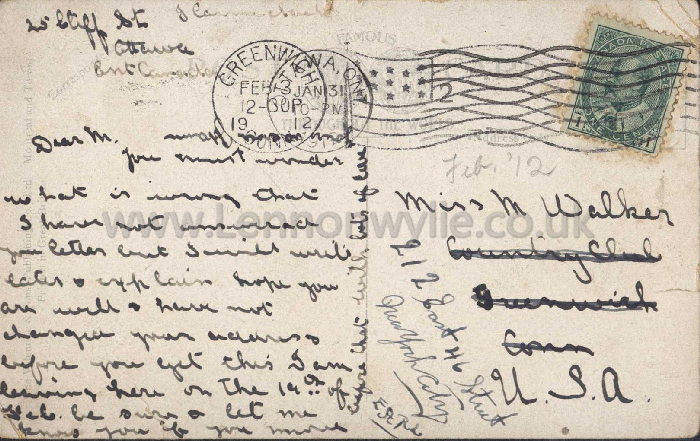 25 Cliff St
Ottawa
Ont
GREENWICH
OTTAWA, ONT
FEB 3
12-30 P
19 12
CONN.
JAN 31
PM
FAMOUS
2
CANADA POSTAGE
ONE CENT
1 1
Feb. '12
Dear M.
you must wonder
what is wrong that
I have not answered
letter but I will write
later & explain hope you
are well & have not
changed your address
before you get this I am
leaving here on the 14th of
Feb. be sure & let me
know if you move
before that with lots of love
Miss M Walker
Country Club
Greenwich
Conn
U.S.A.
212 East 46 Street
New York City
www.Lennonwylie.co.uk